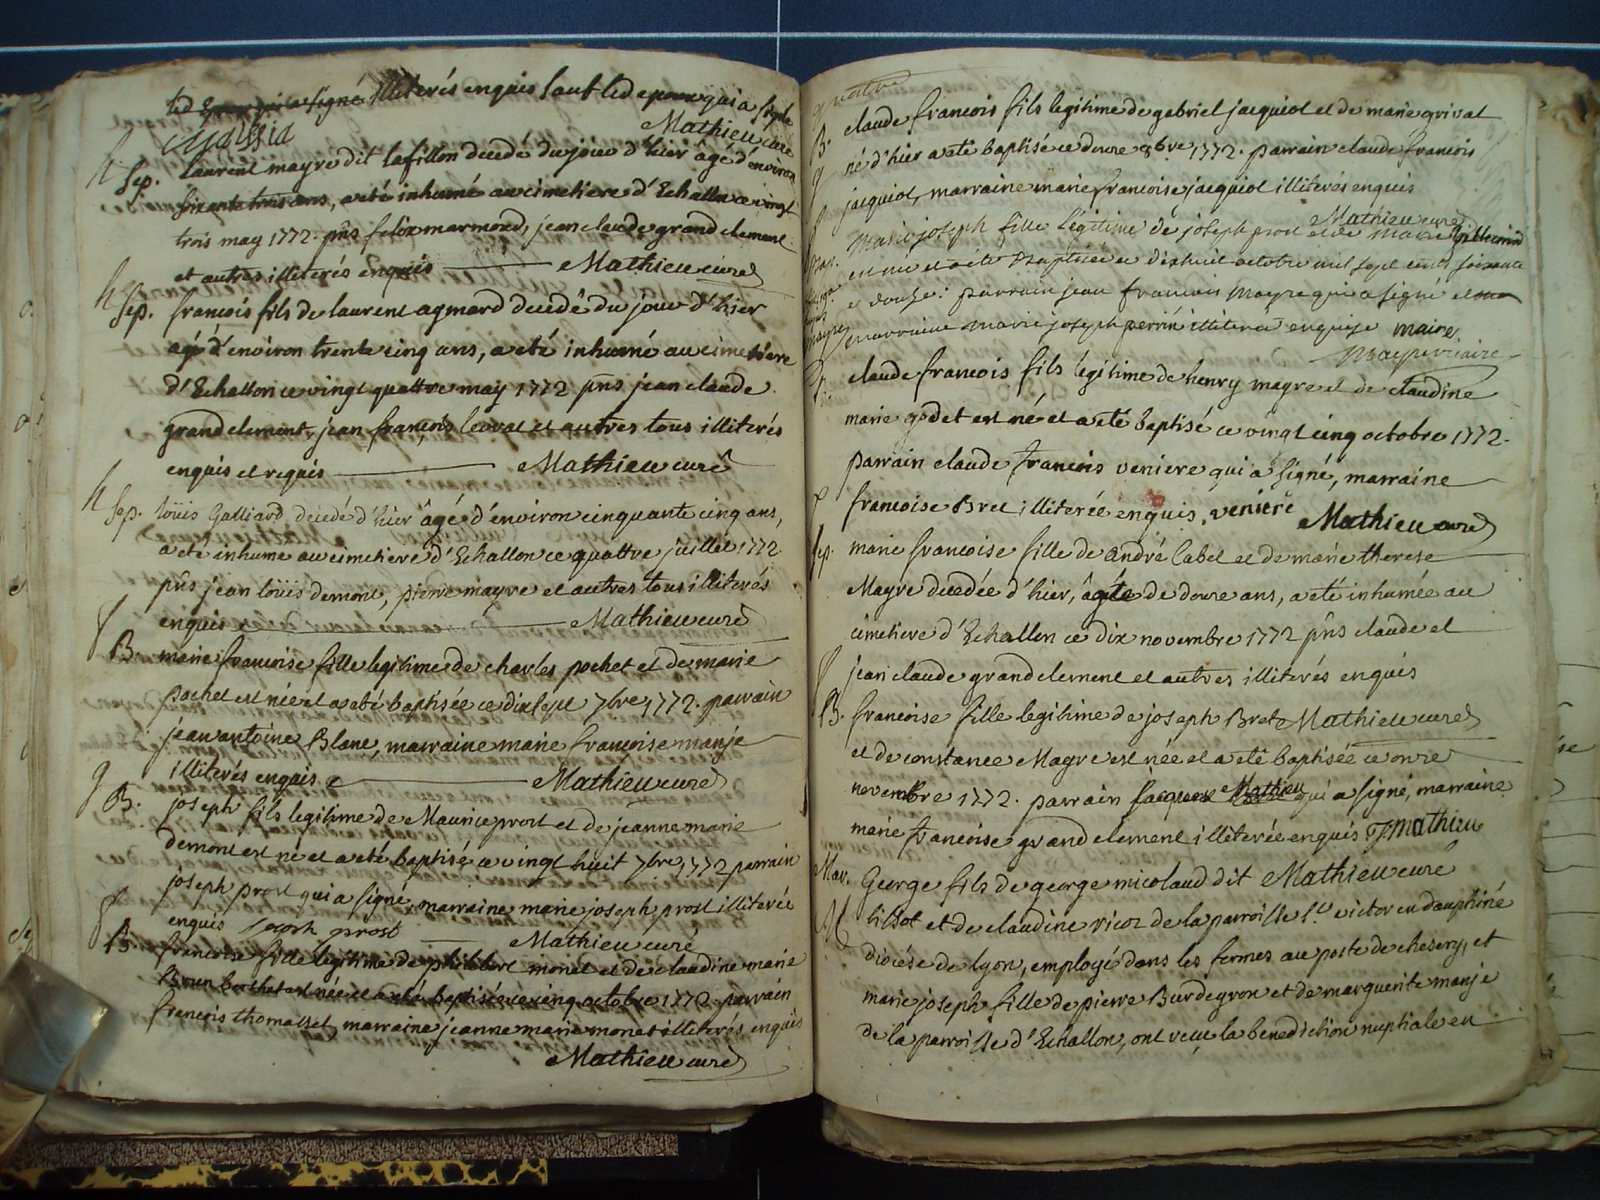 illiterés enquis sauf led epoux qui a signé
Mathieu curé
h Sep. laurent mayre dit lafillon decedé du jour d'hier âgé d'environ
soixante trois ans, a eté inhumé au cimetiere d'Echallon ce vingt
trois may 1772. pñs felix marmond, jean claude grandclement
et autres illiterés enquis Mathieu curé
h Sep. francois fils de laurent aymard decedé du jour d'hier
agé d'environ trente cinq ans, a eté inhumé au cimetiere
d'Echallon ce vingt quattre may 1772. pñs jean claude
grandclement, jean françois levrat et autres tous illiterés
enquis et requis Mathieu curé
h Sep. loüis Galliard decedé d'hier âgé d'environ cinquante cinq ans,
a eté inhumé au cimetiere d'Echallon ce quattre juillet 1772
pñs jean loüis demont, pierre mayre et autres tous illiterés
enquis Mathieu curé
B. marie françoise fille legitime de charles pochet et de marie
pochet est née et a eté baptisée ce dix sept 7bre 1772. parrain
jean antoine Blanc, marraine marie françoise manje
illiterés enquis Mathieu curé
B. joseph fils legitime de Maurice prost et de jeanne marie
demont est né et a eté baptisé ce vingt huit 7bre 1772 parrain
joseph prost qui a signé, marraine marie joseph prost illiterée
enquis joseph prost Mathieu curé
B. francoise fille legitime de philibert monet et de claudine marie
est née et a eté baptisée ce cinq octobre 1772. parrain
françois thomasset, marraine jeanne marie monet illiterés enquis
Mathieu curé
quatre
B. claude francois fils legitime de gabriel jacquiot et de marie grivat
né d'hier a eté baptisé ce douze 8bre 1772. parrain claude francois
jacquiot, marraine marie francoise jacquiot illiterés enquis
Mathieu curé
marie joseph fille légitime de joseph prost et de marie
est née et a eté baptisée ce dixhuit octobre mil sept cents soixante
et douze: parrain jean francois Mayre qui a signé et
marraine marie joseph perrin illiterée enquise maire
Mayre vicaire
claude francois fils légitime de henry mayre et de claudine
marie godet est né et a eté baptisé ce vingt cinq octobre 1772.
parrain claude francois veniere qui a signé, marraine
francoise Bret illiterée enquis, veniere Mathieu curé
Sep. marie francoise fille de andré cabet et de marie therese
Mayre decedée d'hier, âgée de douze ans, a eté inhumée au
cimetiere d'Echallon ce dix novembre 1772 pñs claude et
jean claude grandclement et autres illiterés enquis
B. francoise fille legitime de joseph Bret Mathieu curé
et de constance Mayre est née et a eté baptisée ce onze
novembre 1772. parrain jacques Mathieu qui a signé, marraine
marie francoise grandclement illiterée enquis J mathieu
Mar. George fils de george nicolaud dit Mathieu curé
et de claudine vicoz de la parroisse St victor en dauphiné
diocése de lyon, employé dans les fermes au poste de chesery, et
marie joseph fille de pierre Burdeyron et de marguerite manje
de la parroisse d'Echallon, ont reçu la benediction nuptiale en